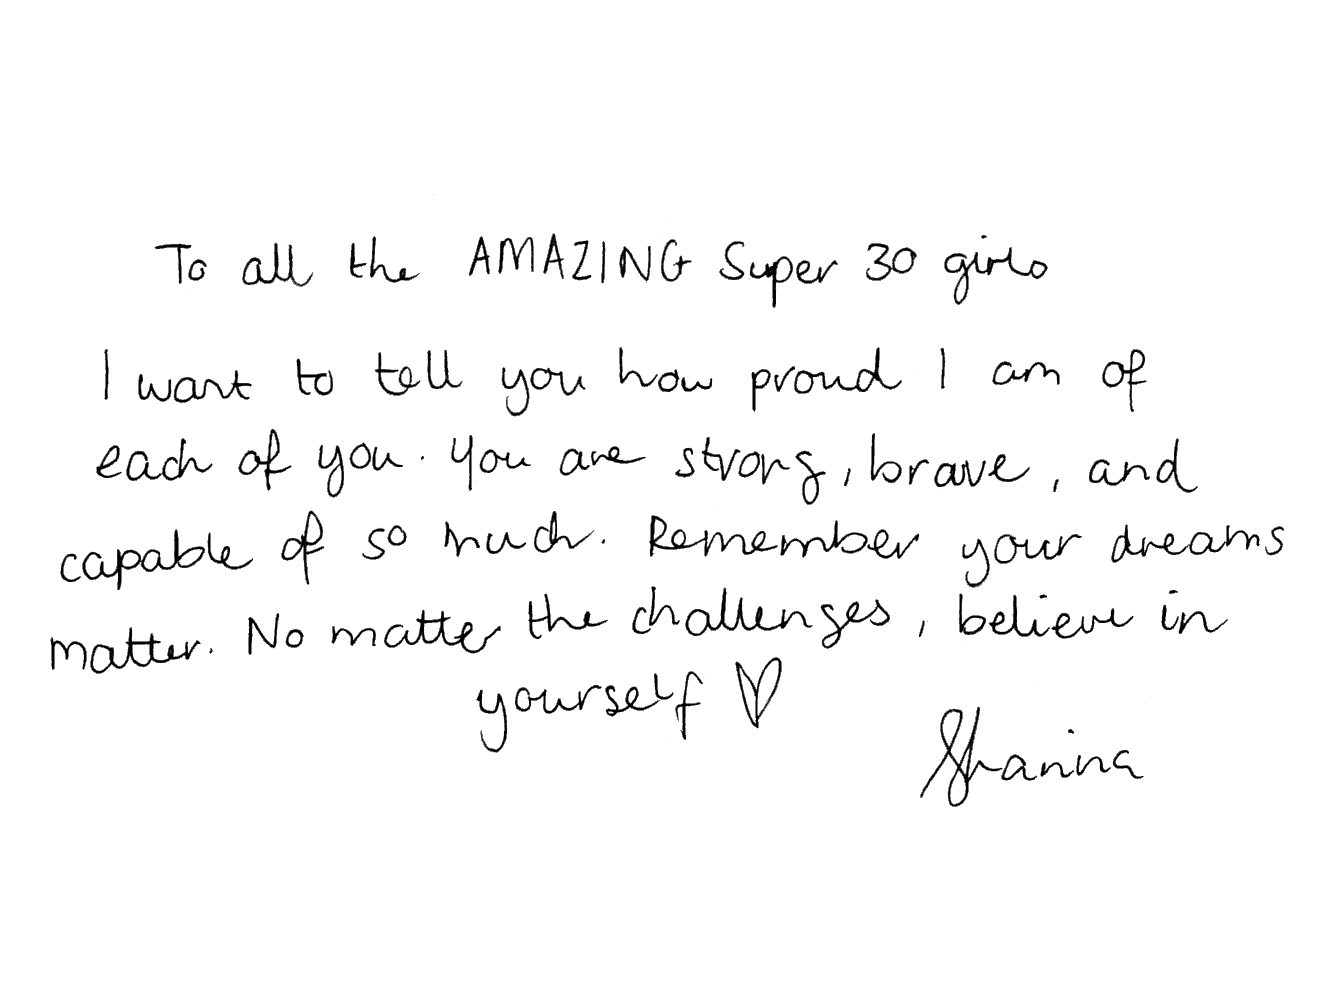 To all the AMAZING Super 30 girls
I want to tell you how proud I am of
each of you. You are strong, brave, and
capable of so much. Remember your dreams
matter. No matter the challenges, believe in
yourself ♡
Shanina